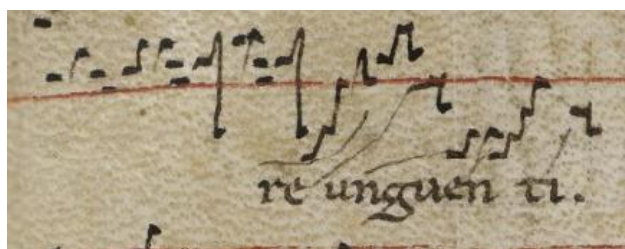 re unguen ti.